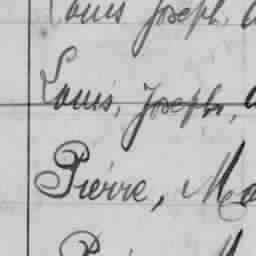 Louis Joseph,
Louis, Joseph,
Pierre, Ma